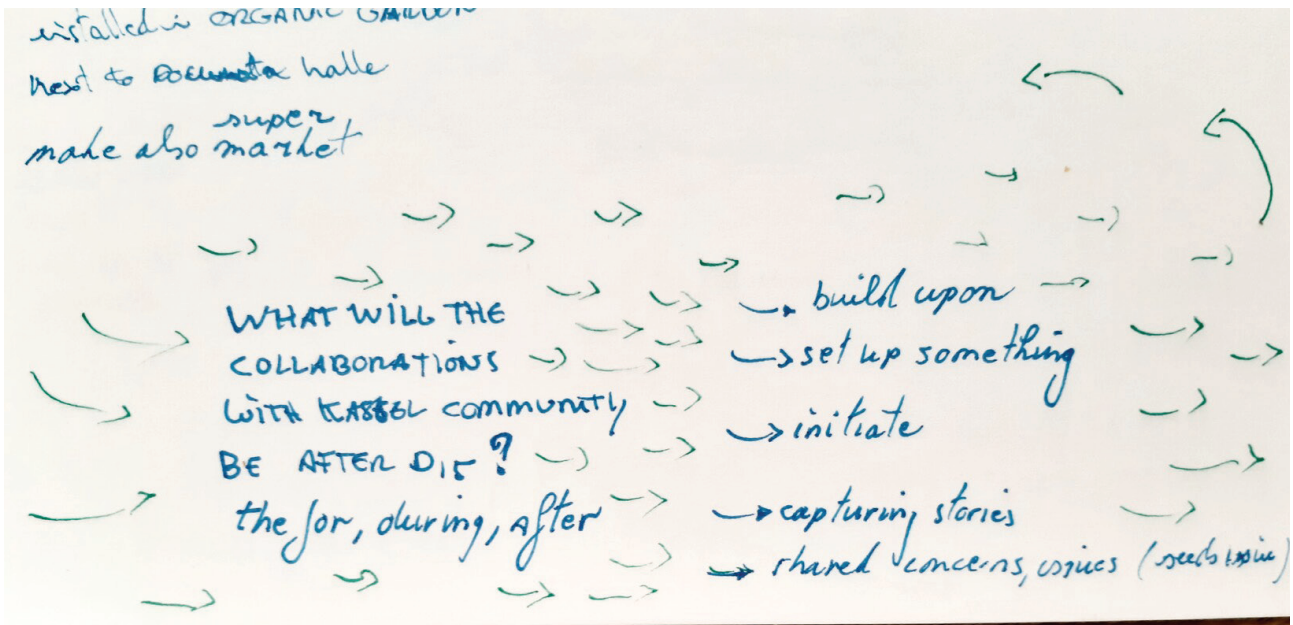 installed in ORGANIC GARDEN
next to Documenta halle
super
make also market
WHAT WILL THE
COLLABORATIONS
WITH KASSEL COMMUNITY
BE AFTER D15?
the for, during, after
build upon
set up something
initiate
capturing stories
shared concerns, issues (seeds issue)